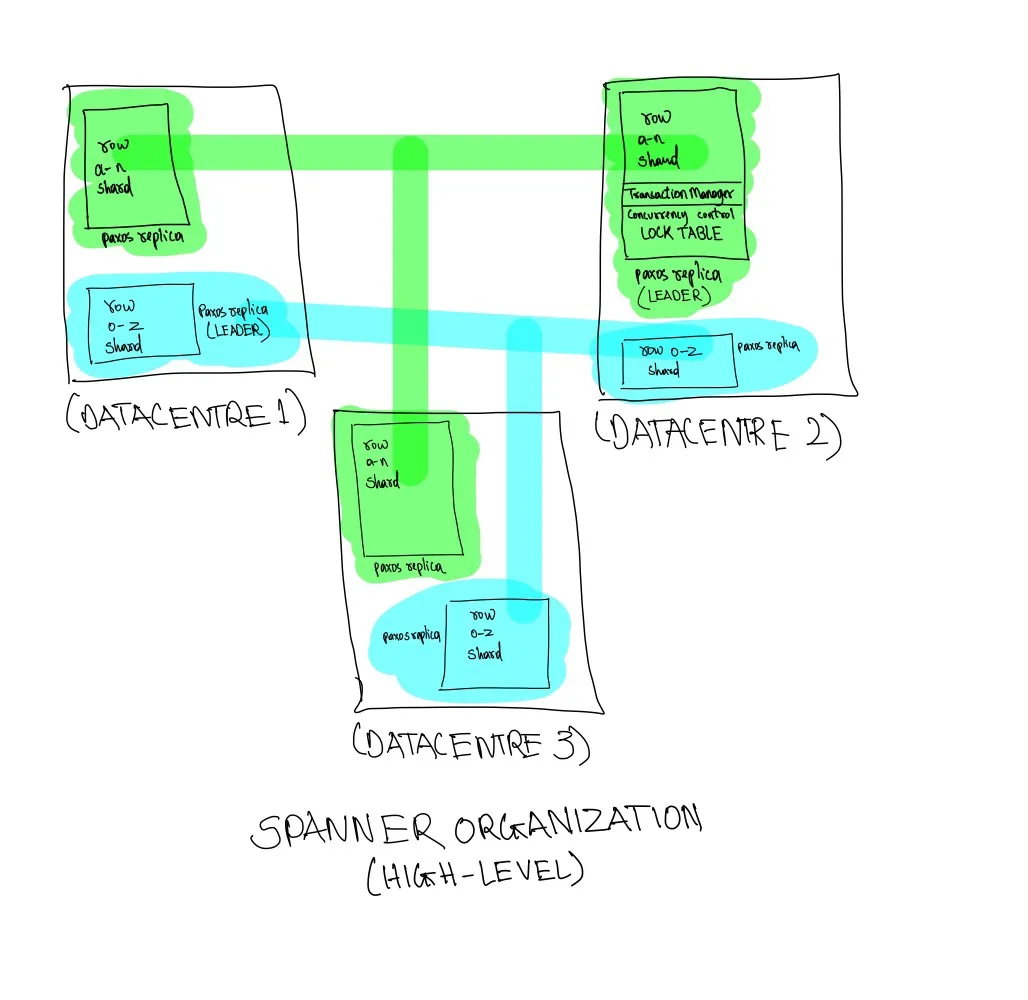 row
a-n
shard
paxos replica
row
o-z
shard
Paxos replica
(LEADER)
(DATACENTRE 1)
row
a-n
shard
Transaction Manager
Concurrency control
LOCK TABLE
paxos replica
(LEADER)
row o-z
shard
paxos replica
(DATACENTRE 2)
row
a-n
shard
paxos replica
paxos replica
row
o-z
shard
(DATACENTRE 3)
SPANNER ORGANIZATION
(HIGH-LEVEL)